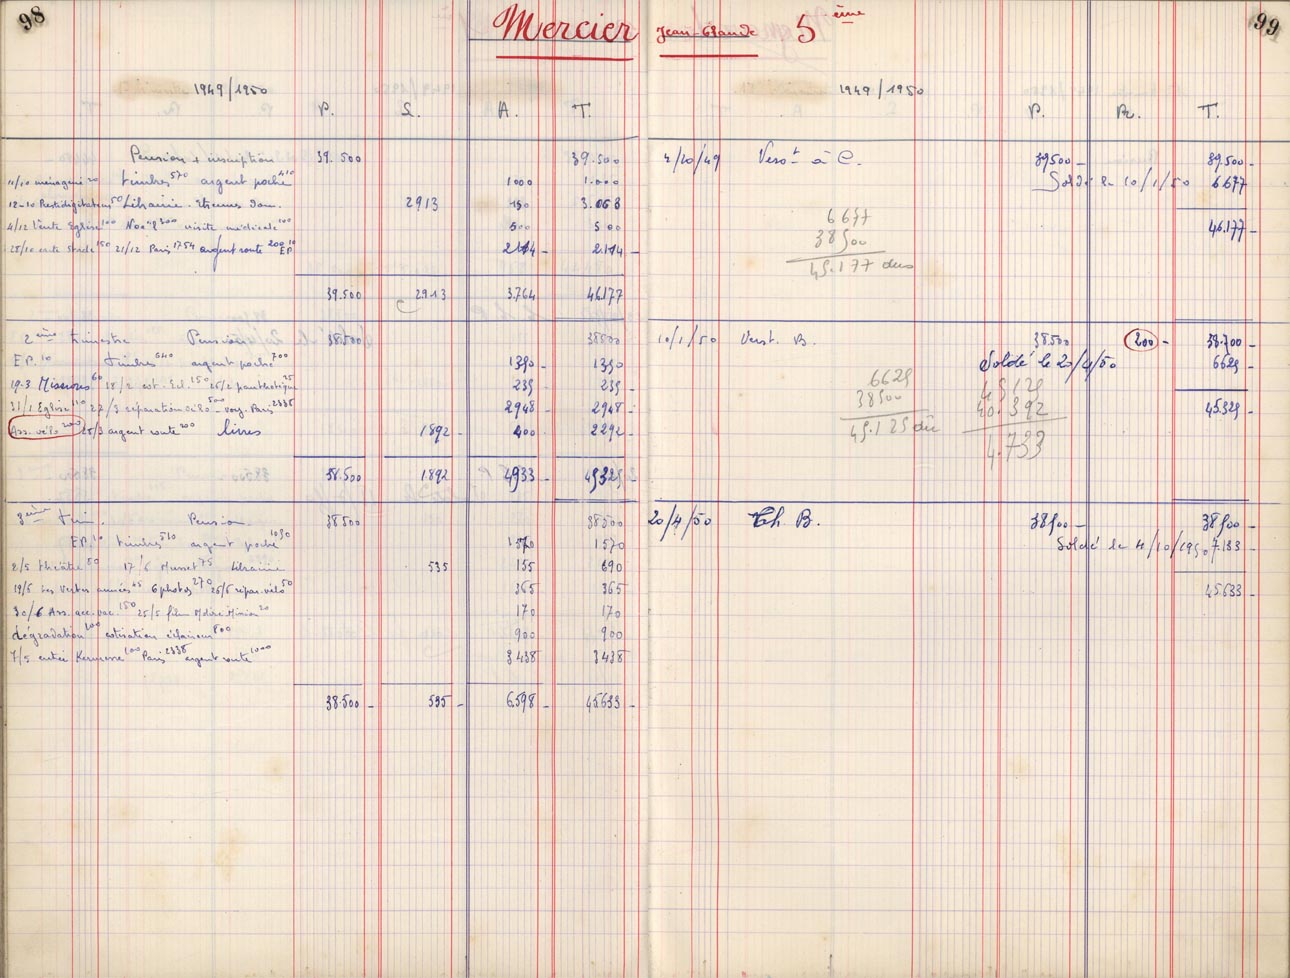 98
Mercier Jean-Claude 5ème
99
1949/1950 P. L. A. T.
Pension + inscription 39.500 39.500
11/10 ménagerie 20 timbres 570 argent poche 410 1000 1.000
12-10 Prestidigitateur 50 Librairie. Etrennes dom. 2913 150 3.063
4/12 Vente Eglise 100 Noël 300 visite médicale 100 500 500
21/12 Paris 1754 argent route 200 EP. 10 2114 - 2.114 -
39.500 2913 3.764 46.177
2ème trimestre Pension 38500 38500
EP. 10 timbres 640 argent poche 700 1350 - 1350
19-3 60 18/2 150 25/2 25 235 - 235 -
31/1 Eglise 110 27/3 réparation vélo 500 - voy. Paris 2338 2948 - 2948 -
Ass. vélo 200 25/3 argent route 200 livres 1892 - 400 2292 -
38.500 1892 4933 - 45325 -
3ème trim. Pension 38500 38500
EP. 10 timbres 510 argent poche 1050 1570 1570
2/5 théâtre 80 17/6 Musset 75 librairie 535 155 690
19/5 Les Vertes années 45 6 photos 270 25/5 répar. vélo 50 365 365
30/6 Ass. acc. vac. 150 25/5 film 20 170 170
dégradation 200 cotisation 800 900 900
7/5 entrée Kermesse 100 Paris 2338 argent route 1000 3438 3438
38.500 - 535 - 6.598 - 45.633 -
1949/1950 P. R. T.
4/10/49 Verst à C. 39500 - 39.500 -
Soldé le 10/1/50 6677
46.177 -
6677
38500
45.177 dus
10/1/50 Verst. B. 38500 200 - 38.700 -
Soldé le 20/4/50 6625 -
45.325 -
6625
38500
45.125 dû
45125
40.392
4.733
20/4/50 Ch. B. 38500 - 38500 -
Soldé le 4/10/1950 7.133 -
45.633 -